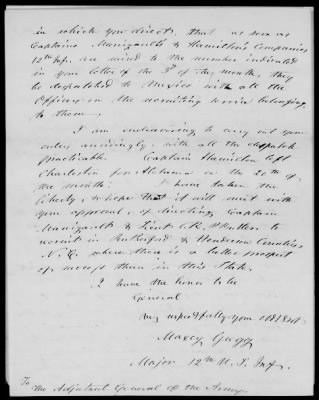 in which you direct, that as soon as
Captains Manigault's & Hamilton's Companies
12th Inf. are raised to the number indicated
in your letter of the 3d of the month, they
be dispatched to Mexico with all the
Officers on the recruiting service belonging
to them.
I am endeavoring to carry out your
orders accordingly, with all the dispatch
practicable. Captain Hamilton left
Charleston for Alabama on the 20th of
the month. I have taken the
liberty, & hope that it will meet with
your approval, of directing Captain
Manigault & Lieut. to
recruit in Rutherford & Henderson Counties,
N.C. where there is a better prospect
of success than in this State.
I have the honor to be
General
very respectfully your obt Svt.
Maxcy Gregg
Major 12th U.S. Inf.
To
The Adjutant General of the Army